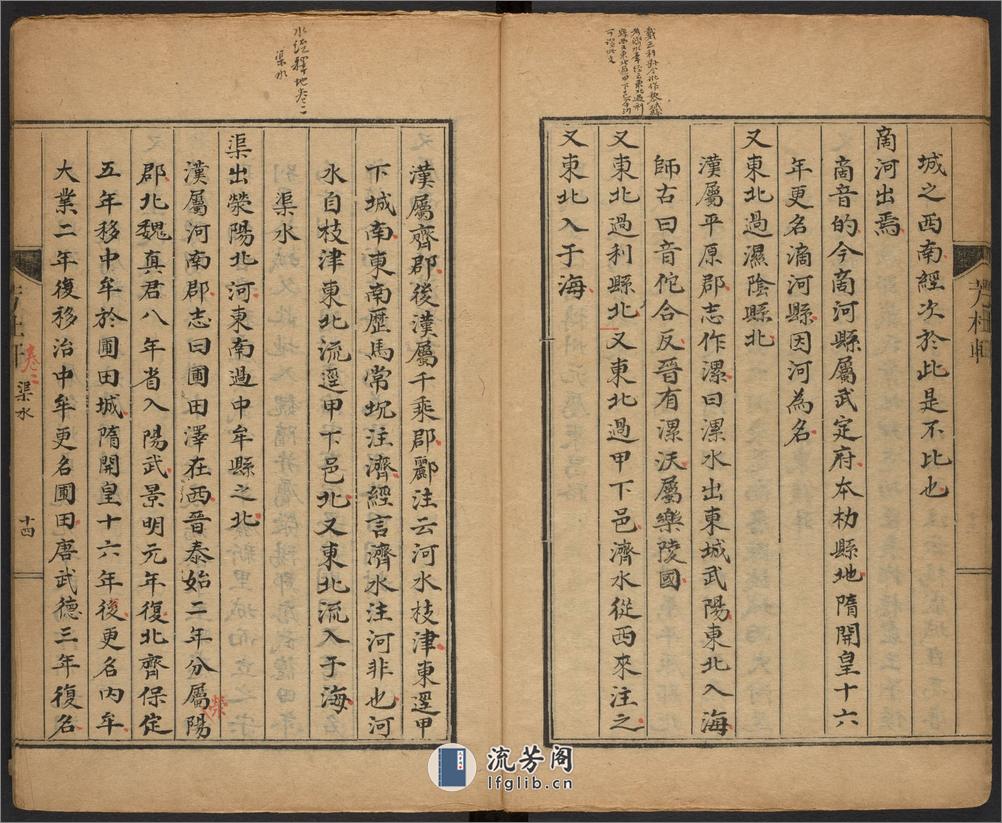 芳杜軒
城之西南經次於此是不比也
啇河出焉
啇音的今啇河縣屬武定府本朸縣地隋開皇十六
年更名滴河縣因河為名
又東北過濕陰縣北
漢屬平原郡志作漯曰漯水出東城武陽東北入海
師古曰音佗合反晉有漯沃屬樂陵國
又東北過利縣北又東北過甲下邑濟水從西來注之
又東北入于海
水經釋地卷二
渠水
漢屬齊郡後漢屬千乘郡酈注云河水枝津東逕甲
下城南東南歷馬常坈注濟經言濟水注河非也河
水自枝津東北流逕甲下邑北又東北流入于海
渠水
渠出滎陽北河東南過中牟縣之北
漢屬河南郡志曰圃田澤在西晉泰始二年分屬陽
滎
郡北魏真君八年省入陽武景明元年復北齊保定
五年移中牟於圃田城隋開皇十六年後更名内牟
大業二年復移治中牟更名圃田唐武德三年復名
卷二
渠水
十四
流芳阁
lfglib.cn